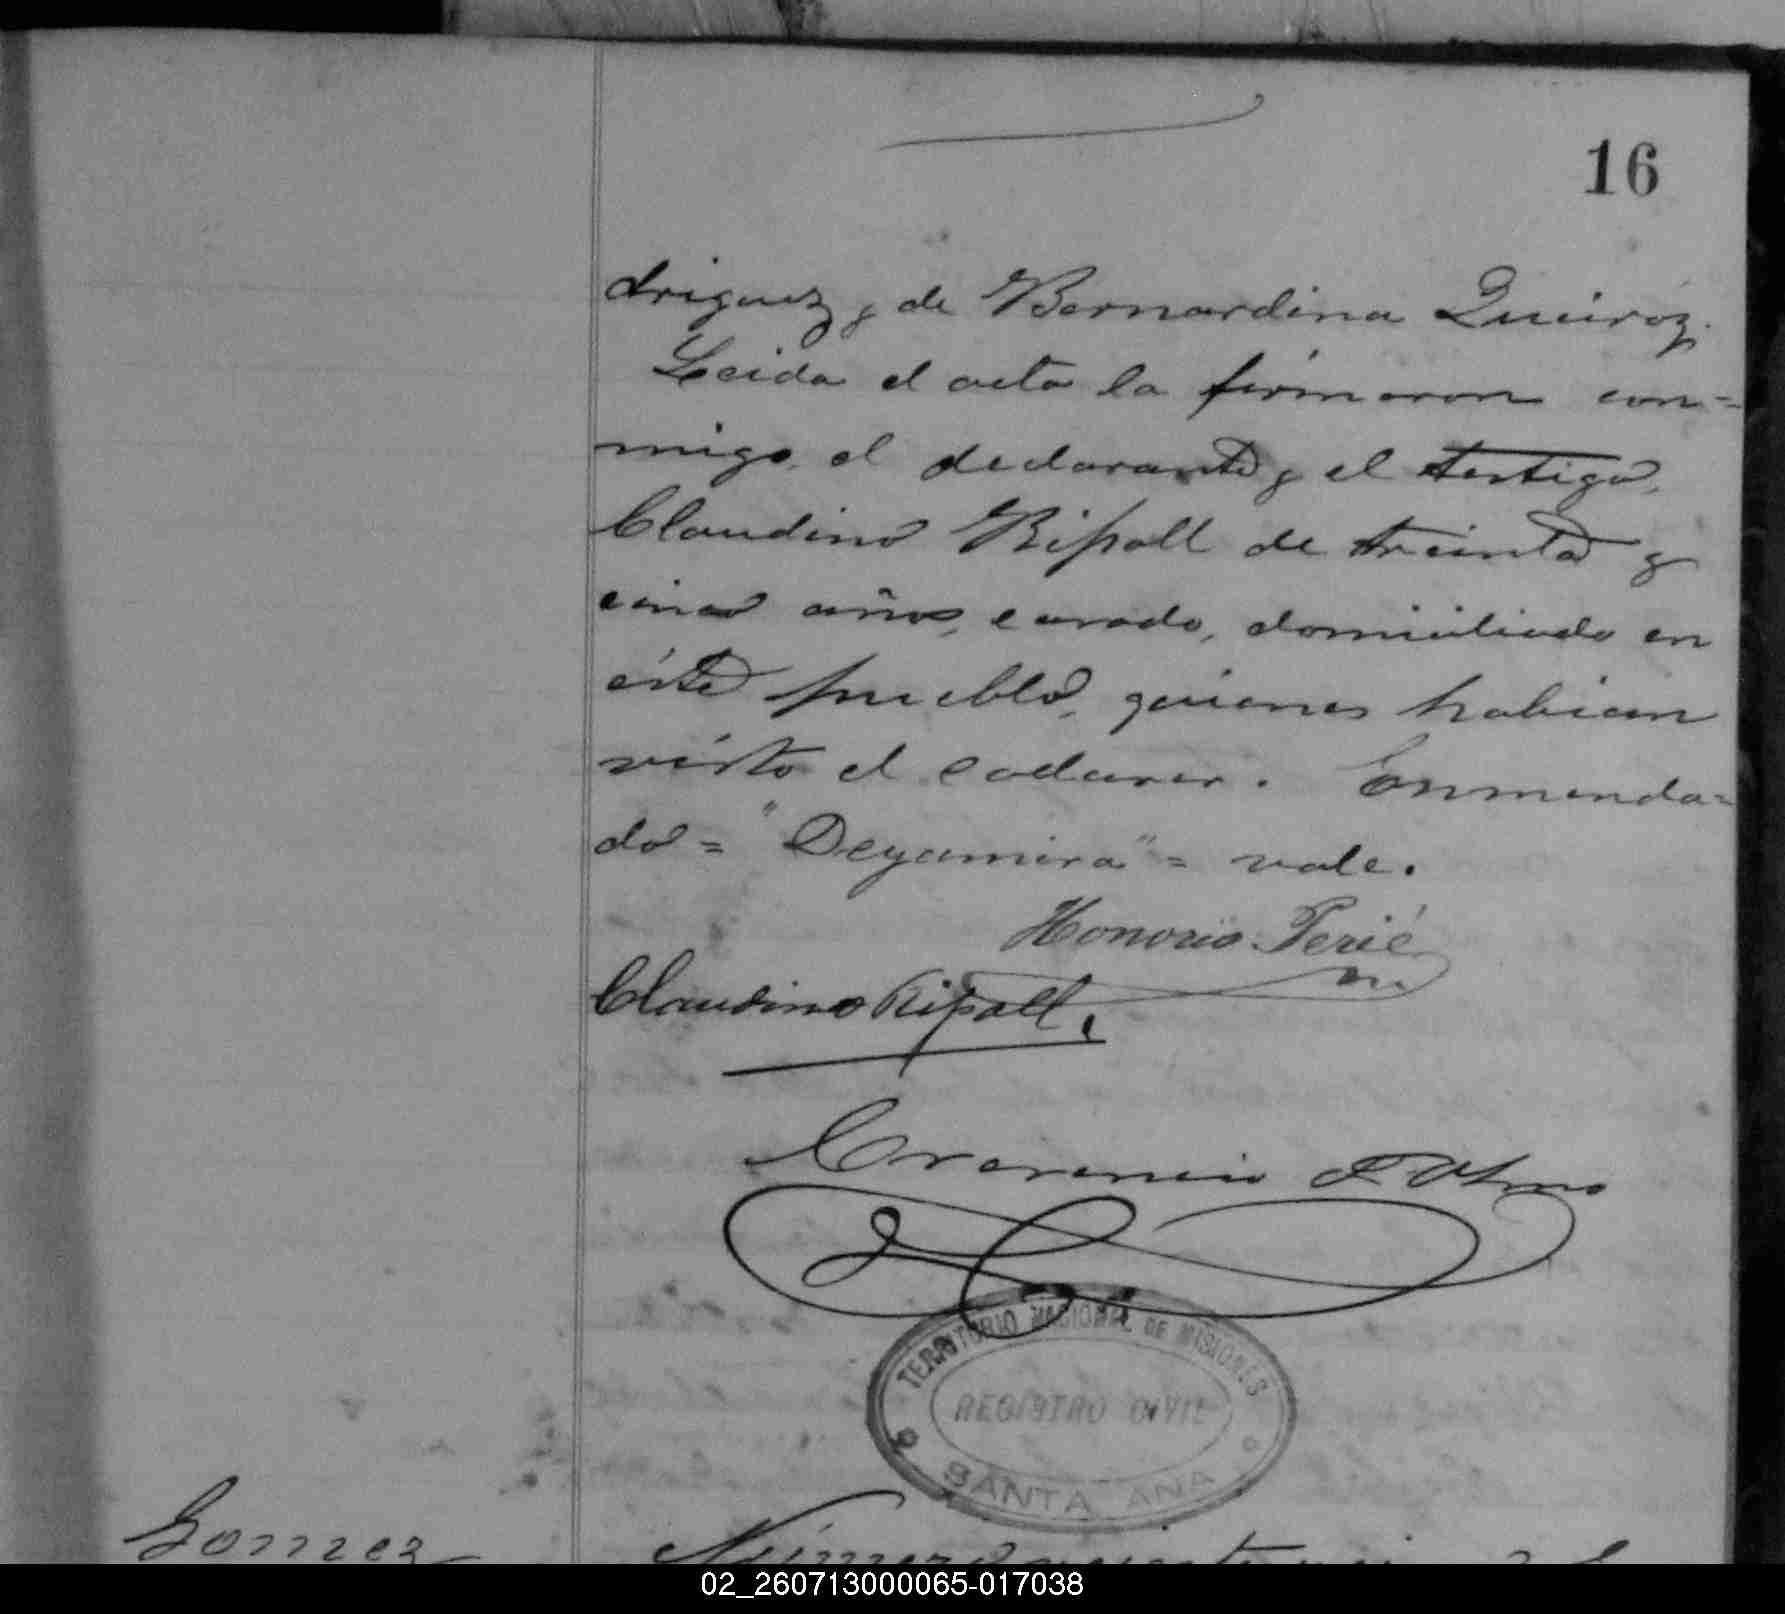 16
driguez y de Bernardina Queiróz.
Leida el acta la firmaron con=
migo, el declarante y el testigo,
Claudino Ripoll de treinta y
cinco años, casado, domiciliado en
éste pueblo, quienes habian
visto el cadaver. Enmenda=
do = "Deyamira" = vale.
Honorio Perié
Claudino Ripoll.
Crecencio F. Olmo
TERRITORIO NACIONAL DE MISIONES
REGISTRO CIVIL
SANTA ANA
Gomez
Número veinte
02_260713000065-017038